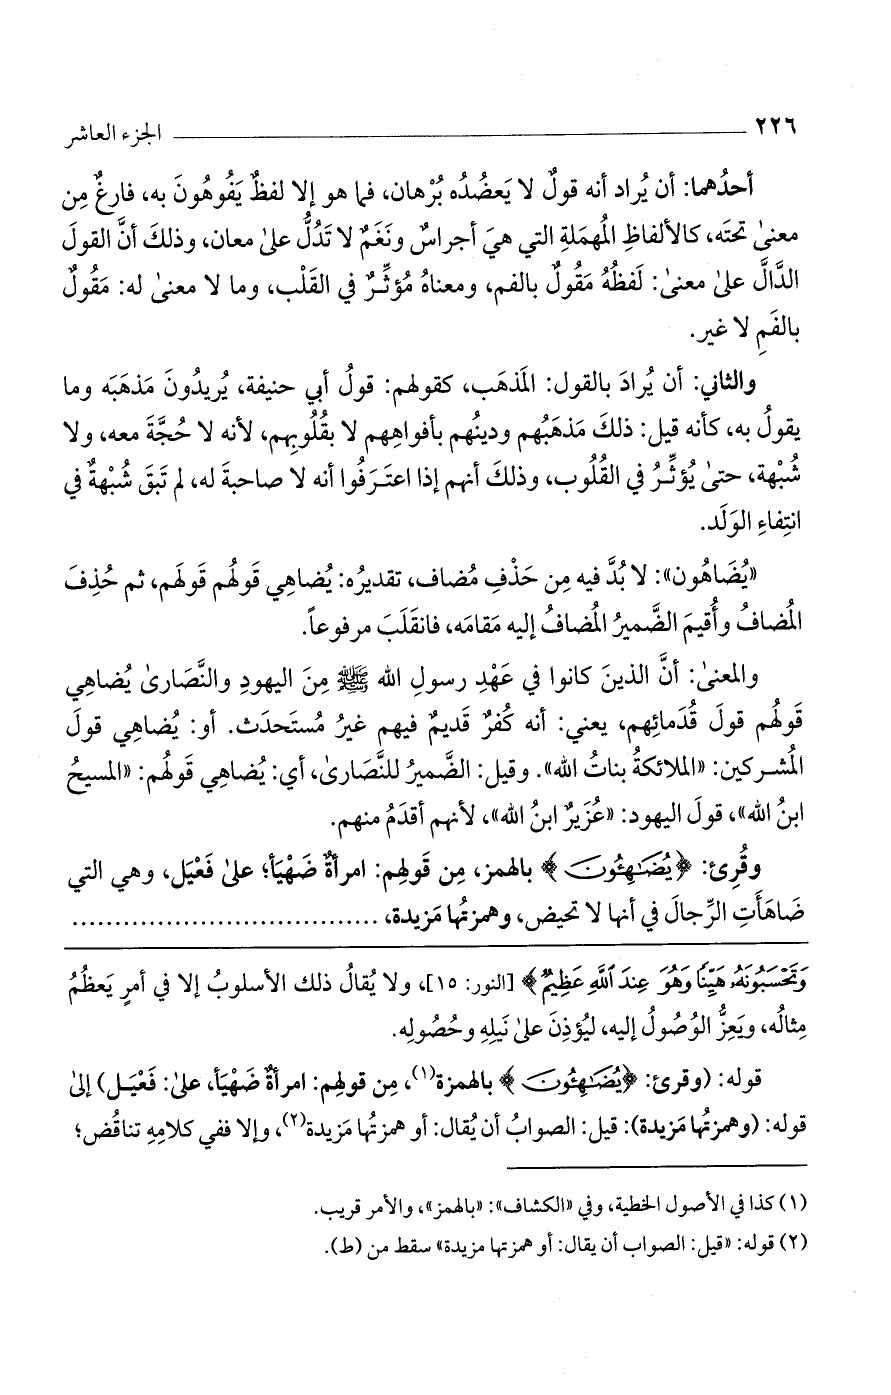 ٢٢٦ الجزء العاشر
أحدُهما: أن يُراد أنه قولٌ لا يَعضُدُه بُرْهان، فما هو إلا لفظٌ يَفُوهُونَ به، فارغٌ مِن
معنىٰ تحتَه، كالألفاظِ المُهمَلةِ التي هيَ أجراسٌ ونَغَمٌ لا تَدُلُّ علىٰ معان، وذلكَ أنَّ القولَ
الدَّالَّ علىٰ معنىٰ: لَفظُهُ مَقُولٌ بالفم، ومعناهُ مُؤثِّرٌ في القَلْب، وما لا معنىٰ له: مَقُولٌ
بالفَمِ لا غير.
والثاني: أن يُرادَ بالقول: المَذهَب، كقولهم: قولُ أبي حنيفة، يُريدُونَ مَذهَبَه وما
يقولُ به، كأنه قيل: ذلكَ مَذهَبُهم ودينُهم بأفواهِهم لا بقُلُوبِهم، لأنه لا حُجَّةَ معه، ولا
شُبْهة، حتىٰ يُؤثِّرُ في القُلُوب، وذلكَ أنهم إذا اعتَرَفُوا أنه لا صاحبةَ له، لم تَبقَ شُبْهةٌ في
انتِفاءِ الوَلَد.
«يُضَاهُون»: لا بُدَّ فيه مِن حَذْفِ مُضاف، تقديرُه: يُضاهِي قَولُهم قَولَهم، ثم حُذِفَ
المُضافُ وأُقيمَ الضَّميرُ المُضافُ إليه مَقامَه، فانقَلَبَ مرفوعاً.
والمعنىٰ: أنَّ الذينَ كانوا في عَهْدِ رسولِ الله ﷺ مِنَ اليهودِ والنَّصَارىٰ يُضاهِي
قَولُهم قولَ قُدَمائِهم، يعني: أنه كُفرٌ قَديمٌ فيهم غيرُ مُستَحدَث. أو: يُضاهِي قولَ
المُشركين: «الملائكةُ بناتُ الله». وقيل: الضَّميرُ للنَّصَارىٰ، أي: يُضاهِي قَولُهم: «المسيحُ
ابنُ الله»، قولَ اليهود: «عُزَيرٌ ابنُ الله»، لأنهم أقدَمُ منهم.
وقُرِئ: ﴿يُضَـٰهِـُٔونَ﴾ بالهمز، مِن قَولِهم: امرأةٌ ضَهْيَأ؛ علىٰ فَعْيَل، وهي التي
ضَاهَأَتِ الرِّجالَ في أنها لا تحيض، وهمزتُها مَزيدة، ..................................
وَتَحْسَبُونَهُۥ هَيِّنًا وَهُوَ عِندَ ٱللَّهِ عَظِيمٌ﴾ [النور: ١٥]، ولا يُقالُ ذلك الأسلوبُ إلا في أمرٍ يَعظُمُ
مِثالُه، ويَعِزُّ الوُصُولُ إليه، ليُؤذِنَ علىٰ نَيلِهِ وحُصُولِه.
قوله: (وقرئ: ﴿يُضَـٰهِـُٔونَ﴾ بالهمزة(١)، مِن قولِهم: امرأةٌ ضَهْيَأ، علىٰ: فَعْيَل) إلىٰ
قوله: (وهمزتُها مَزيدة): قيل: الصوابُ أن يُقال: أو همزتُها مَزيدة(٢)، وإلا ففي كلامِهِ تناقُض؛
(١) كذا في الأصول الخطية، وفي «الكشاف»: «بالهمز»، والأمر قريب.
(٢) قوله: «قيل: الصواب أن يقال: أو همزتها مزيدة» سقط من (ط).